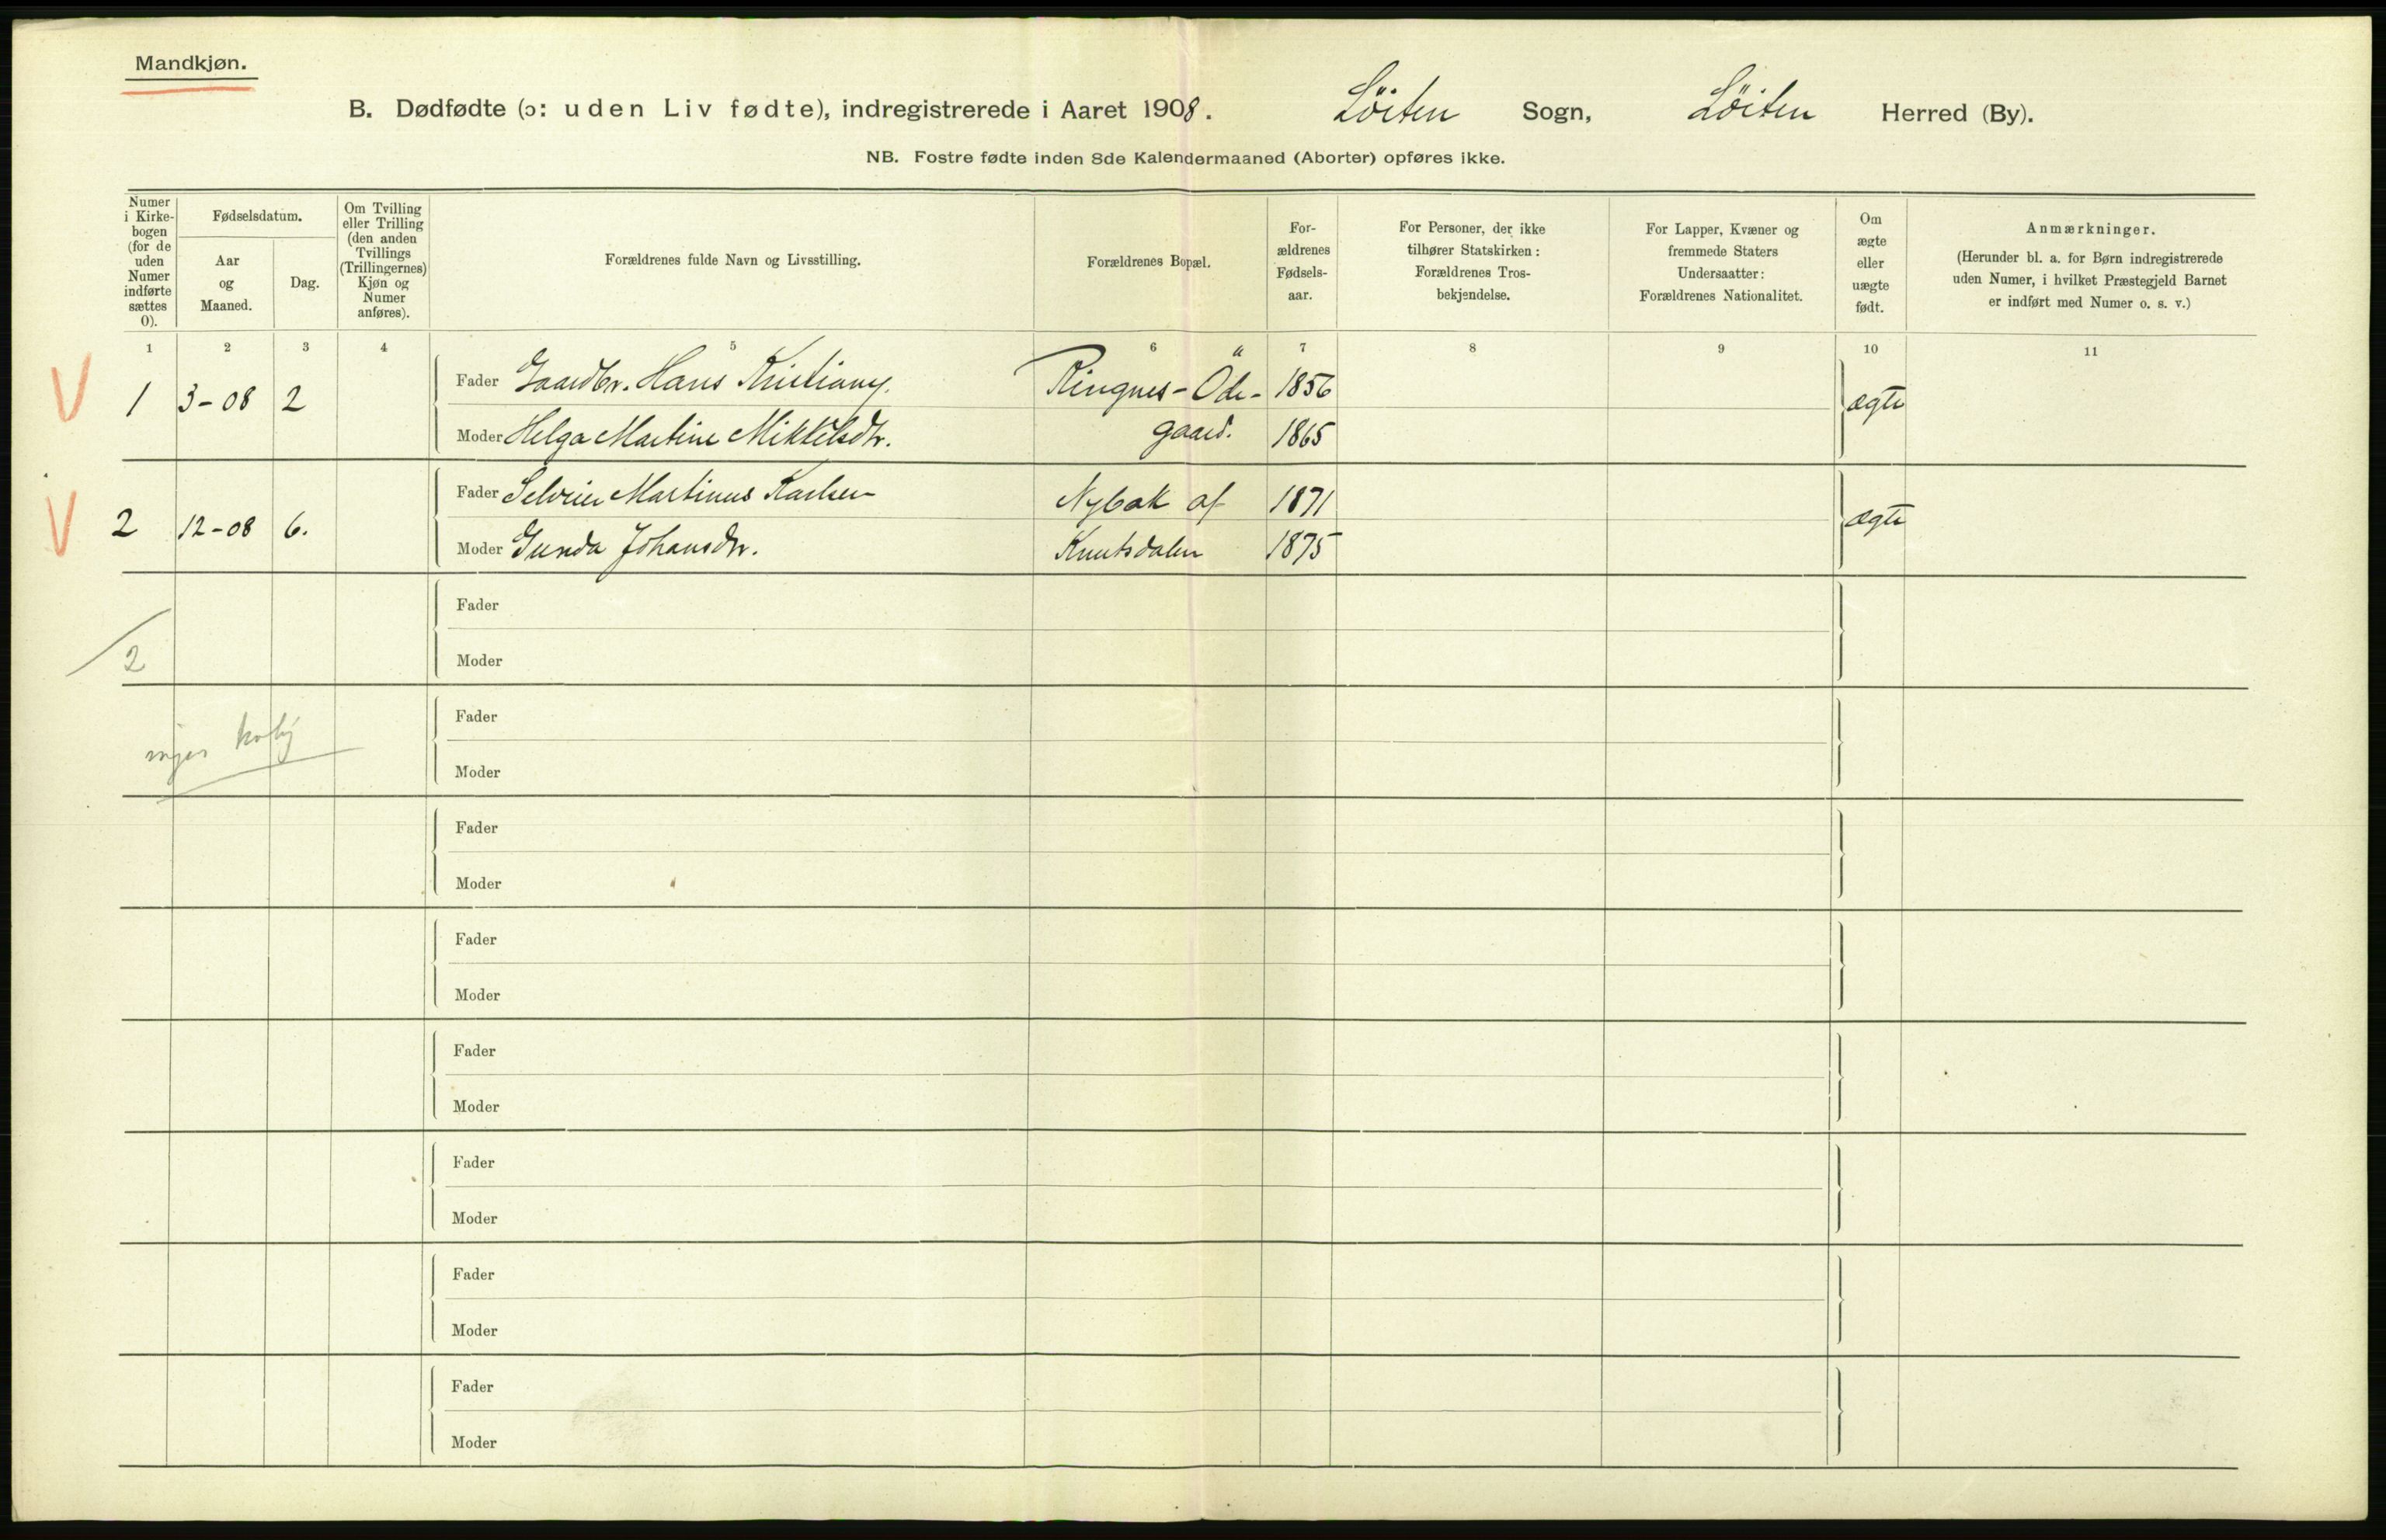 Mandkjøn.
B. Dødfødte (ɔ: uden Liv fødte), indregistrerede i Aaret 1908. Löiten Sogn, Löiten Herred (By).
NB. Fostre fødte inden 8de Kalendermaaned (Aborter) opføres ikke.
Numer
i Kirke-
bogen
(for de
uden
Numer
indførte
sættes
0).
Fødselsdatum.
Aar
og
Maaned.
Dag.
Om Tvilling
eller Trilling
(den anden
Tvillings
(Trillingernes)
Kjøn og
Numer
anføres).
Forældrenes fulde Navn og Livsstilling.
Forældrenes Bopæl.
For-
ældrenes
Fødsels-
aar.
For Personer, der ikke
tilhører Statskirken:
Forældrenes Tros-
bekjendelse.
For Lapper, Kvæner og
fremmede Staters
Undersaatter:
Forældrenes Nationalitet.
Om
ægte
eller
uægte
født.
Anmærkninger.
(Herunder bl. a. for Børn indregistrerede
uden Numer, i hvilket Præstegjeld Barnet
er indført med Numer o. s. v.)
1 2 3 4 5 6 7 8 9 10 11
V 1 3-08 2 Fader Gaardbr. Hans Kristians. Ringnes-Öde- 1856 ægte
Moder Helga Martine Mikkelsdtr. gaard. 1865
V 2 12-08 6. Fader Martinus Karlsen Nybak af 1871 ægte
Moder Gunda Johansdtr. Knutsdalen 1875
Fader
2 Moder
Fader
Moder
Fader
Moder
Fader
Moder
Fader
Moder
Fader
Moder
Fader
Moder
Fader
Moder